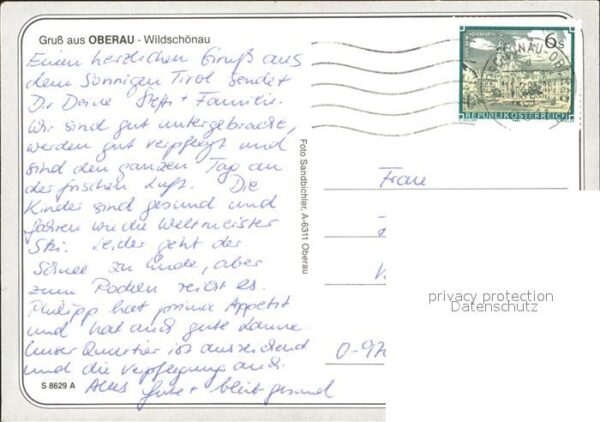 Gruß aus OBERAU - Wildschönau
Einen herzlichen Gruß aus
dem sonnigen Tirol sendet
Dir Deine Steffi + Familie.
Wir sind gut untergebracht,
werden gut verpflegt und
sind den ganzen Tag an
der frischen Luft. Die
Kinder sind gesund und
fahren wie die Weltmeister
Ski. Leider geht der
Schnee zu Ende, aber
zum Rodeln reicht es.
Philipp hat prima Appetit
und hat auch gute Laune.
Unser Quartier ist ausreichend
und die Verpflegung auch.
Alles Gute + bleib gesund
S 8629 A
Foto Sandbichler, A-6311 Oberau
6 S
REPUBLIK ÖSTERREICH
Frau
O-97
privacy protection
Datenschutz